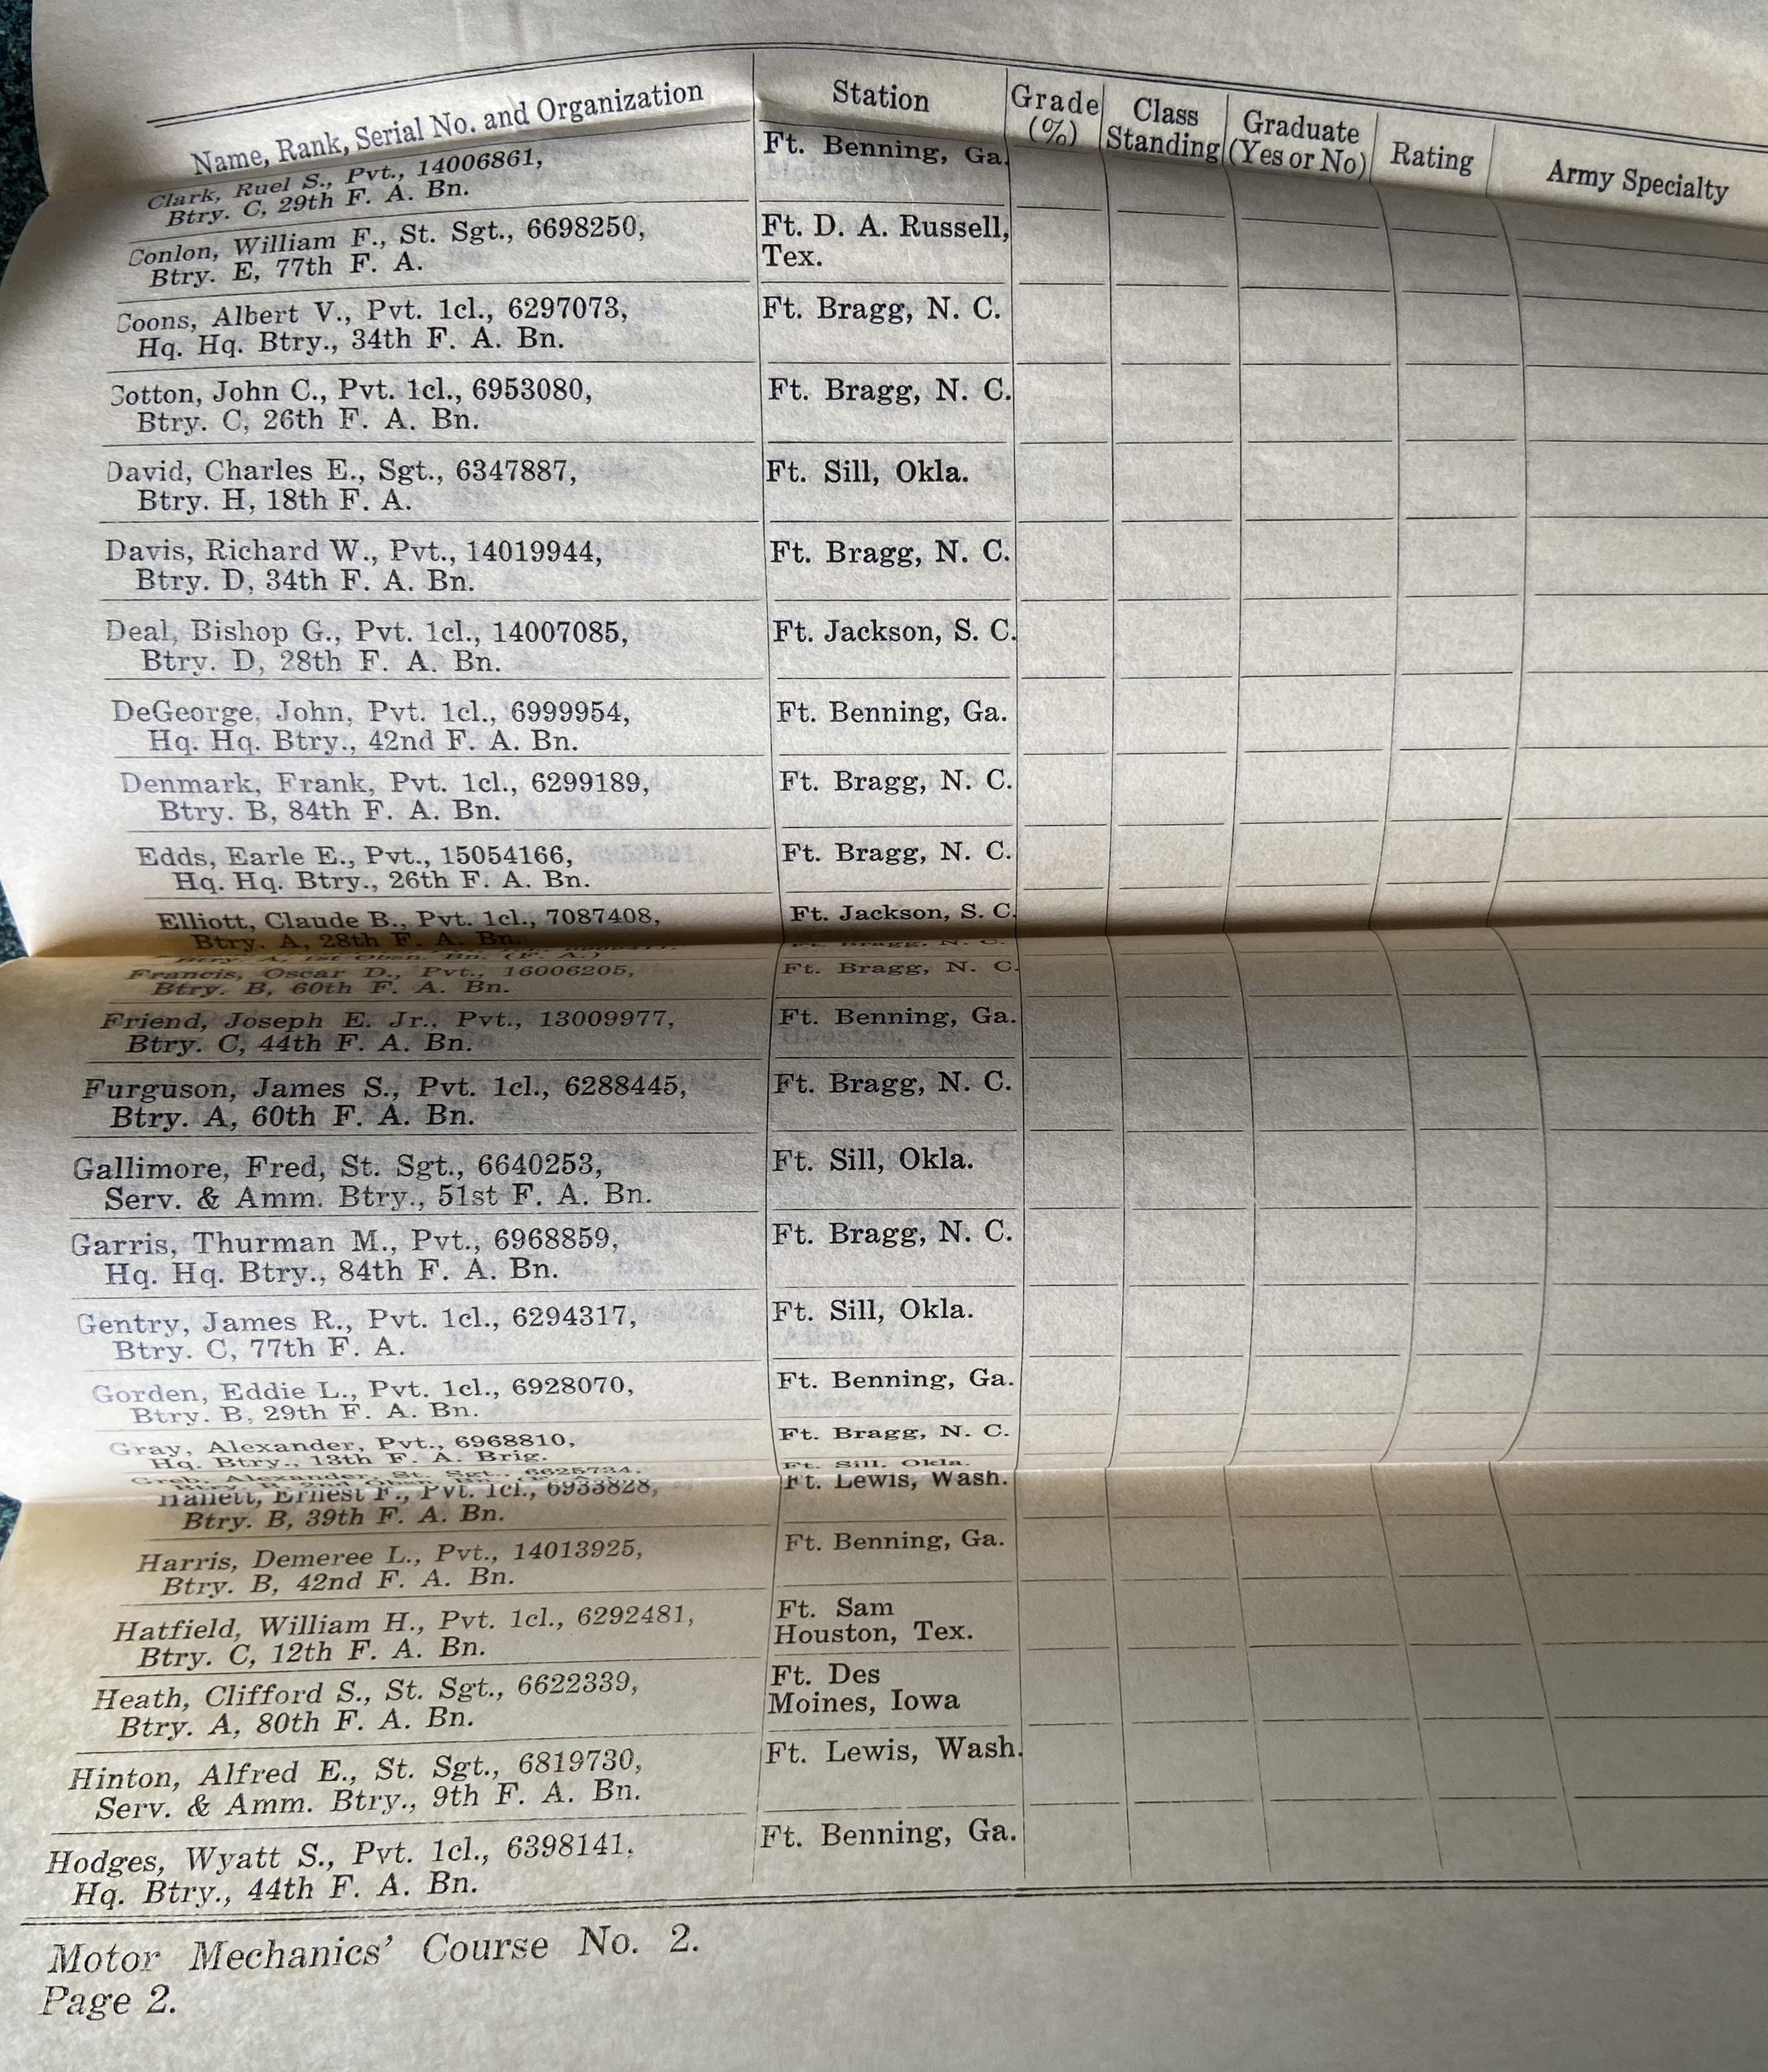 Name, Rank, Serial No. and Organization Station Grade (%) Class Standing Graduate (Yes or No) Rating Army Specialty
Clark, Ruel S., Pvt., 14006861, Ft. Benning, Ga.
Btry. C, 29th F. A. Bn.
Conlon, William F., St. Sgt., 6698250, Ft. D. A. Russell,
Btry. E, 77th F. A. Tex.
Coons, Albert V., Pvt. 1cl., 6297073, Ft. Bragg, N. C.
Hq. Hq. Btry., 34th F. A. Bn.
Cotton, John C., Pvt. 1cl., 6953080, Ft. Bragg, N. C.
Btry. C, 26th F. A. Bn.
David, Charles E., Sgt., 6347887, Ft. Sill, Okla.
Btry. H, 18th F. A.
Davis, Richard W., Pvt., 14019944, Ft. Bragg, N. C.
Btry. D, 34th F. A. Bn.
Deal, Bishop G., Pvt. 1cl., 14007085, Ft. Jackson, S. C.
Btry. D, 28th F. A. Bn.
DeGeorge, John, Pvt. 1cl., 6999954, Ft. Benning, Ga.
Hq. Hq. Btry., 42nd F. A. Bn.
Denmark, Frank, Pvt. 1cl., 6299189, Ft. Bragg, N. C.
Btry. B, 84th F. A. Bn.
Edds, Earle E., Pvt., 15054166, Ft. Bragg, N. C.
Hq. Hq. Btry., 26th F. A. Bn.
Elliott, Claude B., Pvt. 1cl., 7087408, Ft. Jackson, S. C.
Btry. A, 28th F. A. Bn.
Ft. Bragg, N. C.
Btry. A, 1st Obsn. Bn. (F. A.)
Francis, Oscar D., Pvt., 16006205, Ft. Bragg, N. C.
Btry. B, 60th F. A. Bn.
Friend, Joseph E. Jr., Pvt., 13009977, Ft. Benning, Ga.
Btry. C, 44th F. A. Bn.
Furguson, James S., Pvt. 1cl., 6288445, Ft. Bragg, N. C.
Btry. A, 60th F. A. Bn.
Gallimore, Fred, St. Sgt., 6640253, Ft. Sill, Okla.
Serv. & Amm. Btry., 51st F. A. Bn.
Garris, Thurman M., Pvt., 6968859, Ft. Bragg, N. C.
Hq. Hq. Btry., 84th F. A. Bn.
Gentry, James R., Pvt. 1cl., 6294317, Ft. Sill, Okla.
Btry. C, 77th F. A.
Gorden, Eddie L., Pvt. 1cl., 6928070, Ft. Benning, Ga.
Btry. B, 29th F. A. Bn.
Gray, Alexander, Pvt., 6968810, Ft. Bragg, N. C.
Hq. Btry., 13th F. A. Brig.
Greb, Alexander, St. Sgt., 6625734, Ft. Sill, Okla.
Hallett, Ernest F., Pvt. 1cl., 6933828, Ft. Lewis, Wash.
Btry. B, 39th F. A. Bn.
Harris, Demeree L., Pvt., 14013925, Ft. Benning, Ga.
Btry. B, 42nd F. A. Bn.
Hatfield, William H., Pvt. 1cl., 6292481, Ft. Sam
Btry. C, 12th F. A. Bn. Houston, Tex.
Heath, Clifford S., St. Sgt., 6622339, Ft. Des
Btry. A, 80th F. A. Bn. Moines, Iowa
Hinton, Alfred E., St. Sgt., 6819730, Ft. Lewis, Wash.
Serv. & Amm. Btry., 9th F. A. Bn.
Hodges, Wyatt S., Pvt. 1cl., 6398141, Ft. Benning, Ga.
Hq. Btry., 44th F. A. Bn.
Motor Mechanics' Course No. 2.
Page 2.